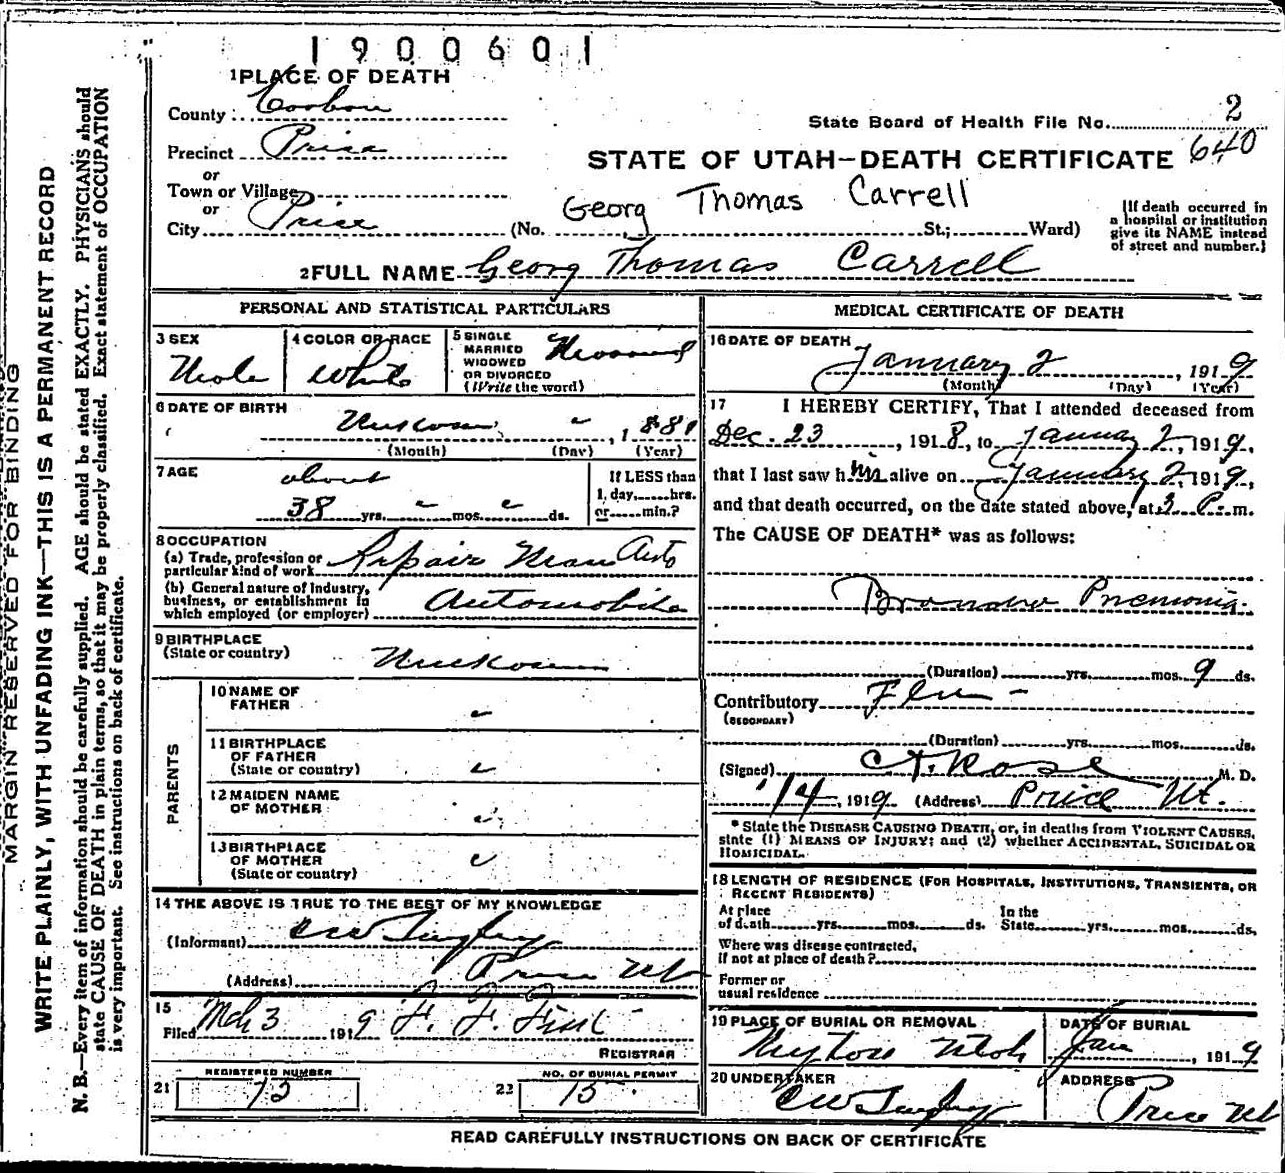 1900601
1 PLACE OF DEATH
County
State Board of Health File No. 2
Precinct Price
640
or
STATE OF UTAH—DEATH CERTIFICATE
Town or Village
or
Georg Thomas Carrell
City Price (No. St.; Ward)
(If death occurred in
a hospital or institution
give its NAME instead
of street and number.)
2 FULL NAME Georg Thomas Carrell
PERSONAL AND STATISTICAL PARTICULARS
3 SEX
Male
4 COLOR OR RACE
White
5 SINGLE
MARRIED
WIDOWED
OR DIVORCED
(Write the word)
6 DATE OF BIRTH
, 1881
(Month) (Day) (Year)
7 AGE
about
38 yrs. mos. ds.
If LESS than
1 day, hrs.
or min.?
8 OCCUPATION
(a) Trade, profession or
particular kind of work Repair Man Auto
(b) General nature of Industry,
business, or establishment in
which employed (or employer) Automobile
9 BIRTHPLACE
(State or country)
PARENTS
10 NAME OF
FATHER
11 BIRTHPLACE
OF FATHER
(State or country)
12 MAIDEN NAME
OF MOTHER
13 BIRTHPLACE
OF MOTHER
(State or country)
14 THE ABOVE IS TRUE TO THE BEST OF MY KNOWLEDGE
(Informant) C W
(Address) Price Ut
15
Filed Mch 3 1919
REGISTRAR
REGISTERED NUMBER
21
NO. OF BURIAL PERMIT
22 15
MEDICAL CERTIFICATE OF DEATH
16 DATE OF DEATH
January 2, 1919
(Month) (Day) (Year)
17 I HEREBY CERTIFY, That I attended deceased from
Dec. 23, 1918, to January 2, 1919,
that I last saw him alive on January 2, 1919,
and that death occurred, on the date stated above, at 3 P. m.
The CAUSE OF DEATH* was as follows:
Broncho Pnemonia
(Duration) yrs. mos. 9 ds.
Contributory Flu -
(SECONDARY)
(Duration) yrs. mos. ds.
(Signed) Rose M. D.
1/4, 1919 (Address) Price Ut.
* State the DISEASE CAUSING DEATH, or, in deaths from VIOLENT CAUSES,
state (1) MEANS OF INJURY; and (2) whether ACCIDENTAL, SUICIDAL OR
HOMICIDAL.
18 LENGTH OF RESIDENCE (FOR HOSPITALS, INSTITUTIONS, TRANSIENTS, OR
RECENT RESIDENTS)
At place
of death yrs. mos. ds.
In the
State yrs. mos. ds.
Where was disease contracted,
if not at place of death?
Former or
usual residence
19 PLACE OF BURIAL OR REMOVAL
Utah
DATE OF BURIAL
Jan, 1919
20 UNDERTAKER
C W
ADDRESS
Price Ut
READ CAREFULLY INSTRUCTIONS ON BACK OF CERTIFICATE
MARGIN RESERVED FOR BINDING
WRITE PLAINLY, WITH UNFADING INK—THIS IS A PERMANENT RECORD
N. B.—Every item of information should be carefully supplied. AGE should be stated EXACTLY. PHYSICIANS should
state CAUSE OF DEATH in plain terms, so that it may be properly classified. Exact statement of OCCUPATION
is very important. See instructions on back of certificate.